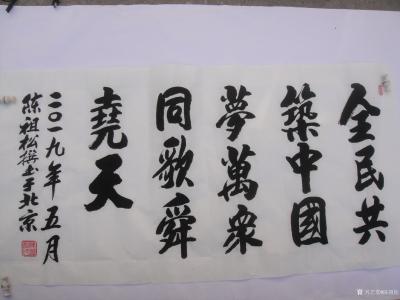 全民共
築中國
夢萬衆
同歌舜
堯天
二〇一九年五月
陈祖松撰书于北京